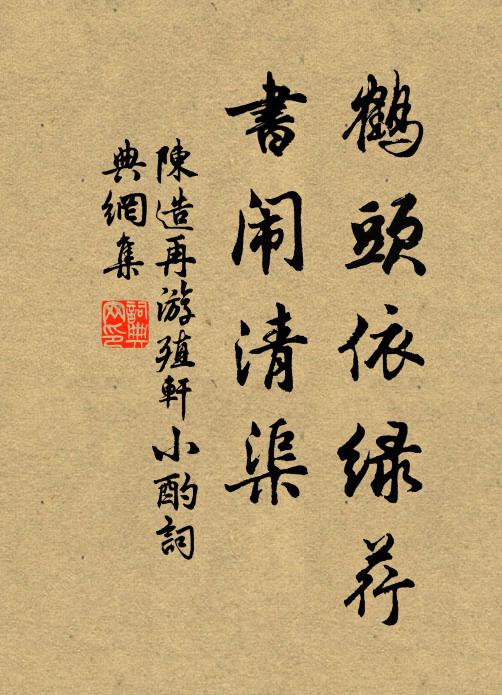 鹤頭依绿荇
書闹清渠
陳造再游殖軒小酌詞
典網集
詞典
网印